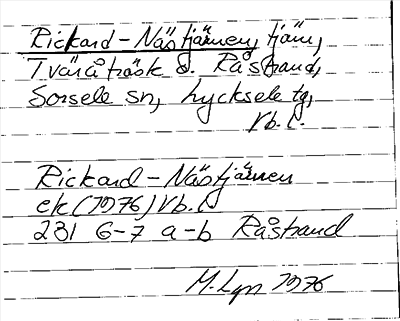 Rickard-Nästjärnen, tjärn,
Tväråträsk o. Råstrand,
Sorsele sn, Lycksele tg,
Vb. l.
Rickard-Nästjärnen
ek (1976) Vb. l
231 6-7 a-b Råstrand
M. Lgn 1976